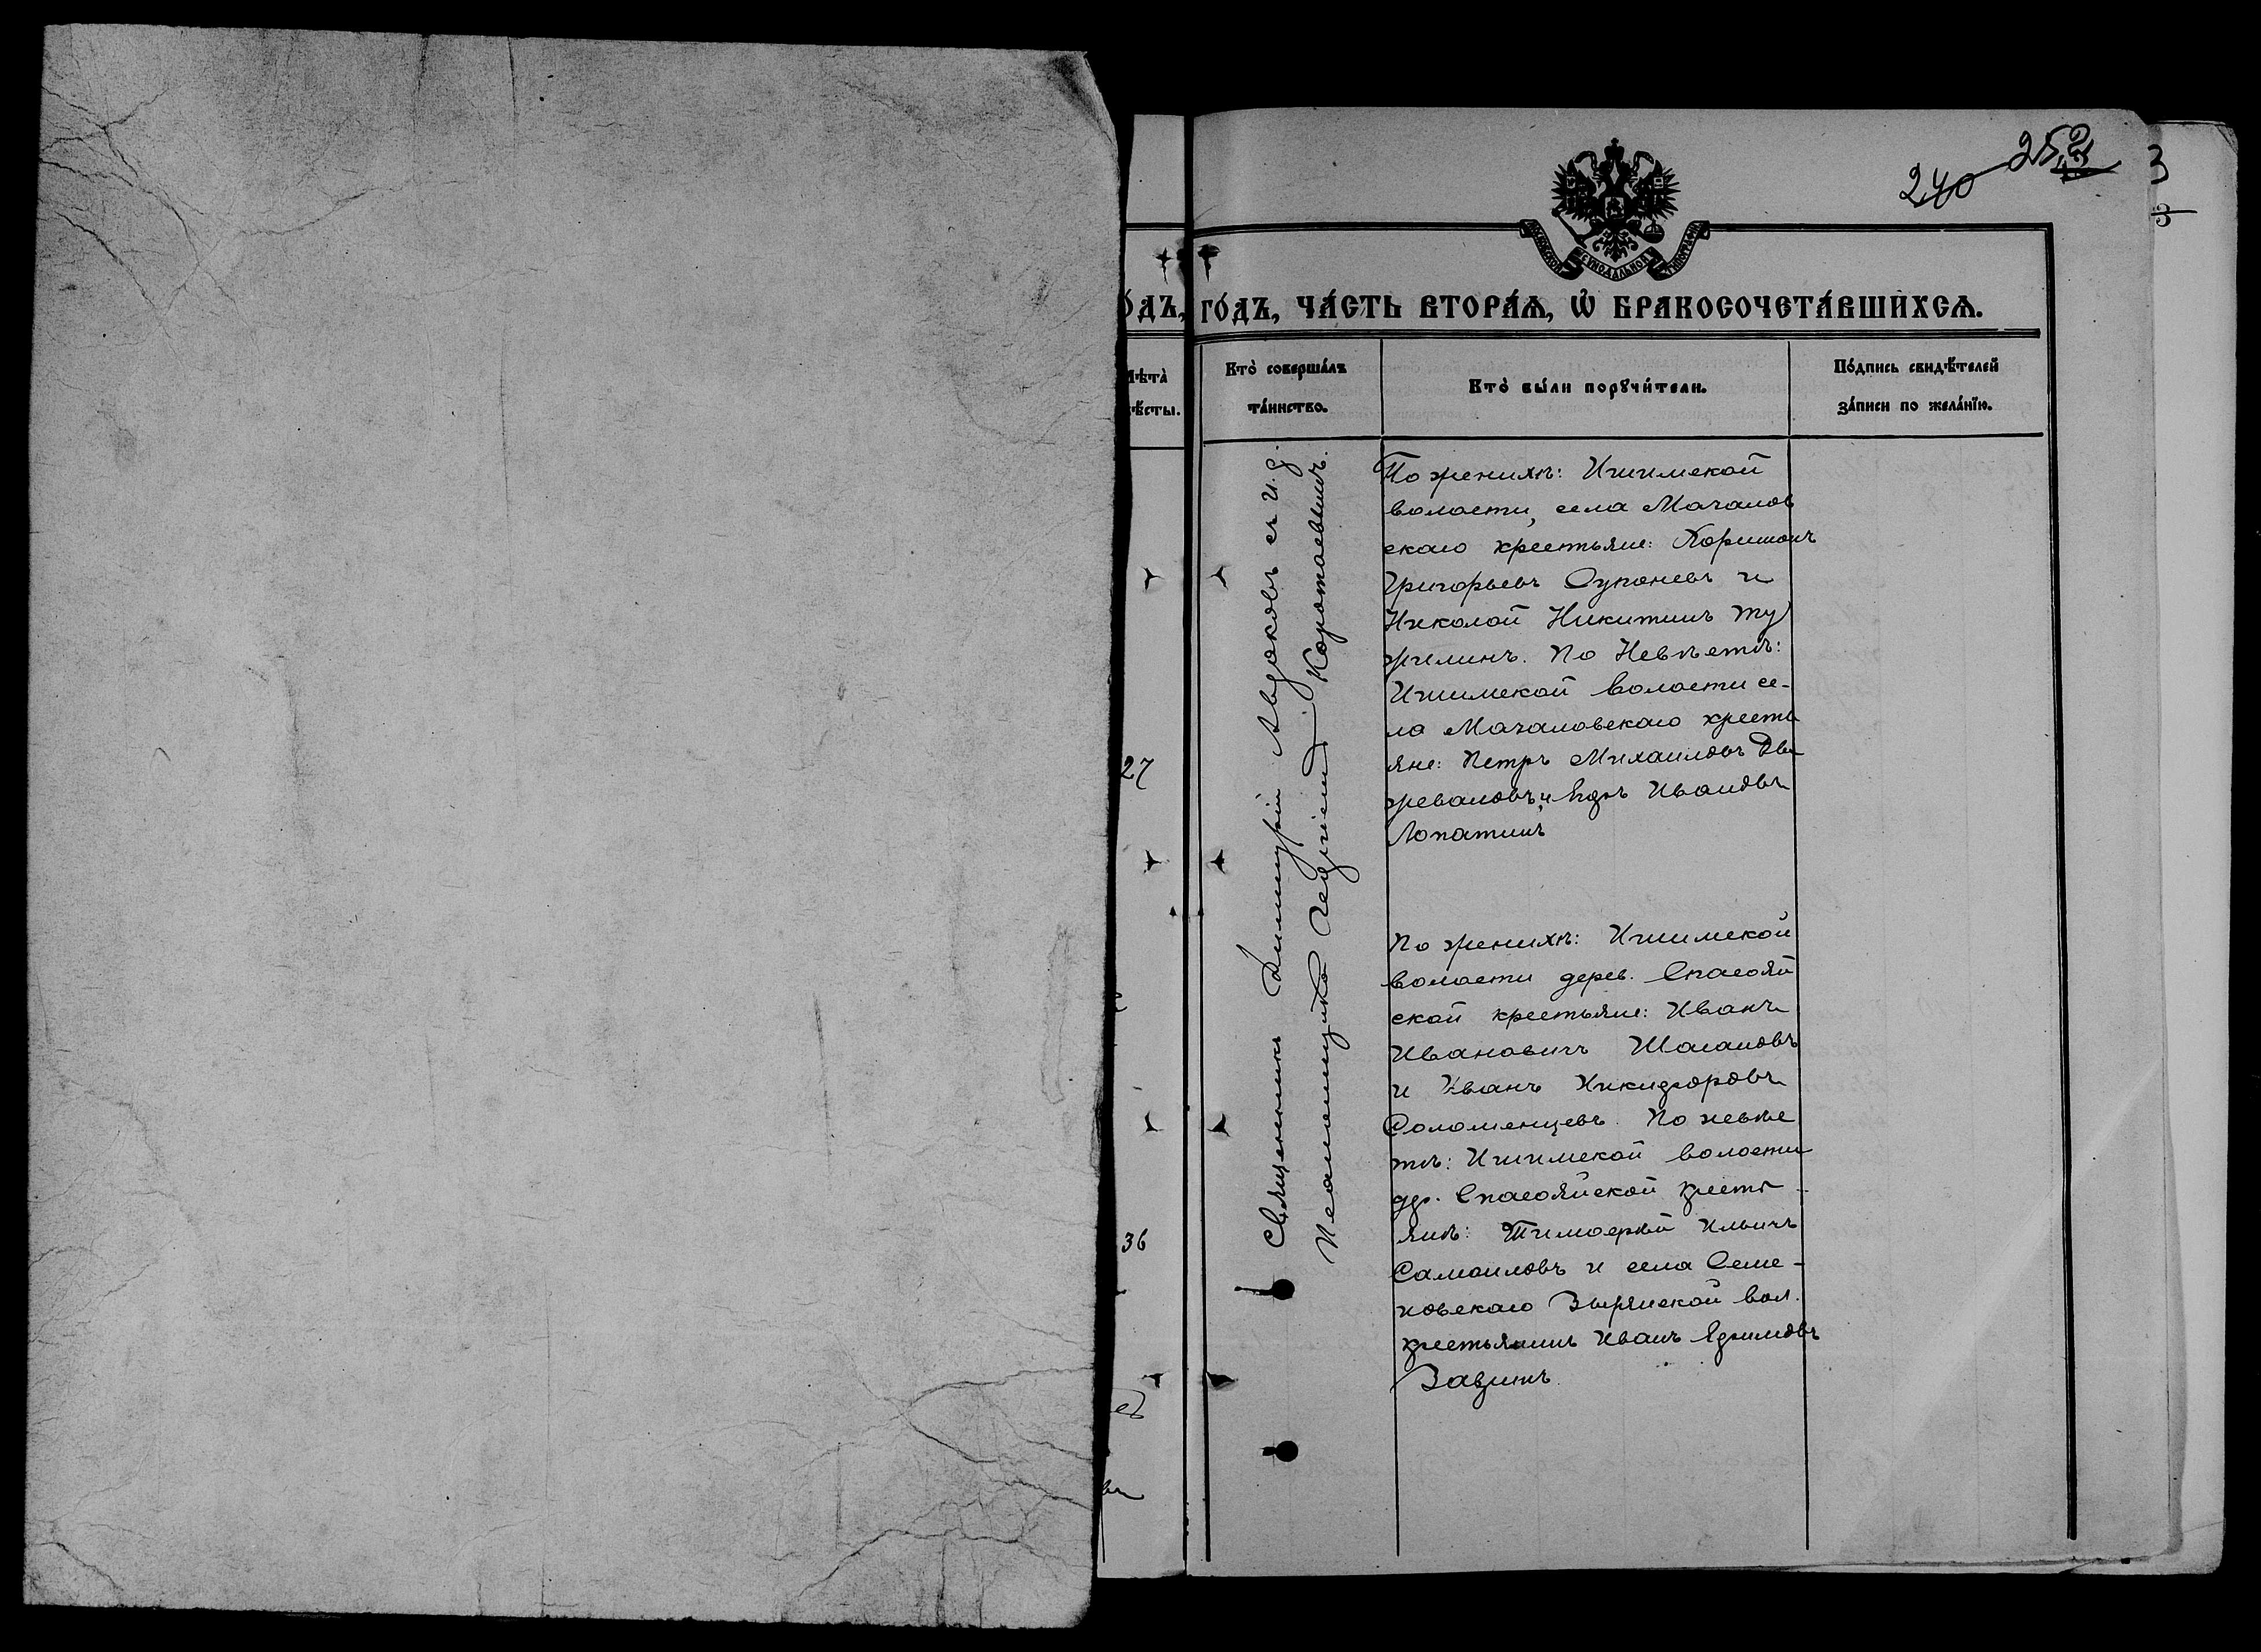 240 252
3
3
МОСКОВСКОЙ СѴНОДАЛЬНОЙ ТИПОГРАФІИ
о́дъ,
го́дъ, ча́сть втора́ѧ, ѡ҆ бракосочета́вшихсѧ.
Лѣта̀
вѣ́сты.
Кто̀ соверша́лъ
та́инство.
Кто̀ бы́ли порꙋчи́тели.
По́дпись свидѣ́телей
за́писи по жела́нїю.
27
36
Священникъ Димитрій Авдаковъ съ и. д.
Псаломщика Георгіемъ Коротаевымъ.
По женихѣ: Ишимской
волости, села Мачалов
скаго крестьяне:
Григорьевъ Супоневъ и
Николай Никитинъ Ту
жилинъ. По Невѣстѣ:
Ишимской волости се-
ла Мачаловскаго кресть
яне: Петръ Михаиловъ
и Иванова
Лопатинъ
По женихѣ: Ишимской
волости дерев. Спасояй
ской крестьяне: Иванъ
Ивановичъ Шагаловъ
и Иванъ Никифоровъ
Соломенцевъ. По невѣс
тѣ: Ишимской волости
дер. Спасояйской кресть-
янѣ: Тимофей Ильичъ
Самоиловъ и села Семе-
новскаго Зырянской вол.
крестьянинъ Иванъ Ефимовъ